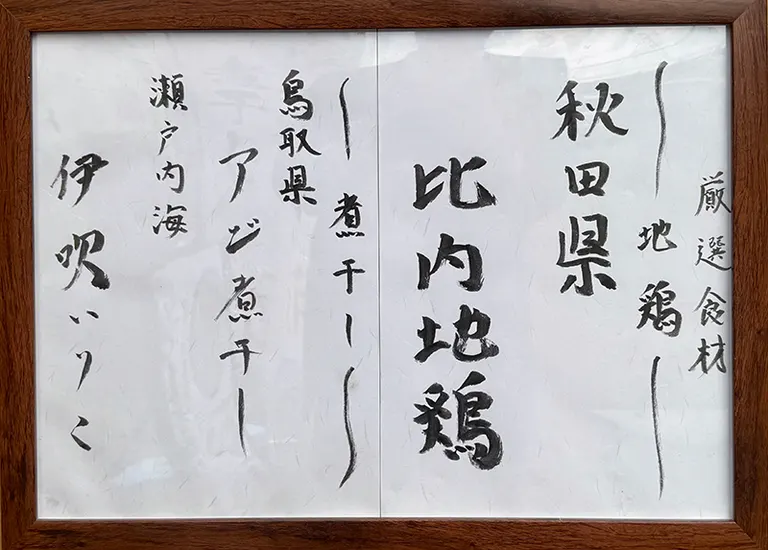 厳選食材
〜地鶏〜
秋田県
比内地鶏
〜煮干し〜
鳥取県
アジ煮干し
瀬戸内海
伊吹いりこ